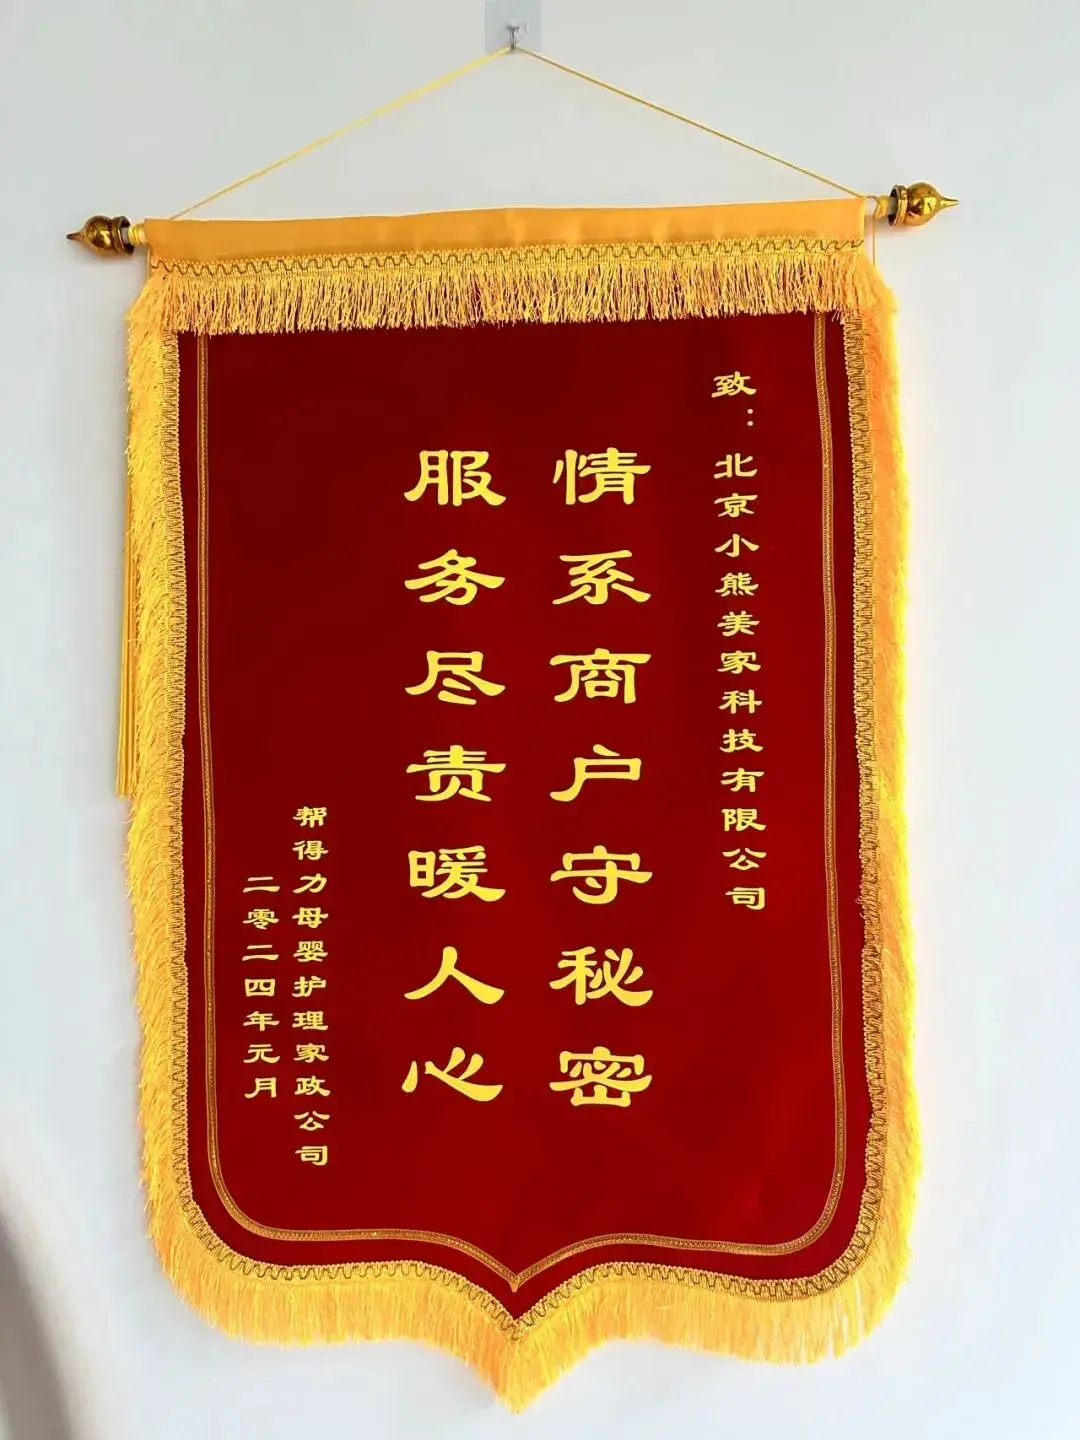 致：北京小熊美家科技有限公司
情系商户守秘密
服务尽责暖人心
帮得力母婴护理家政公司
二零二四年元月